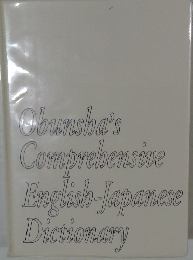 Obunsha's
Comprehensive
English-Japanese
Dictionary